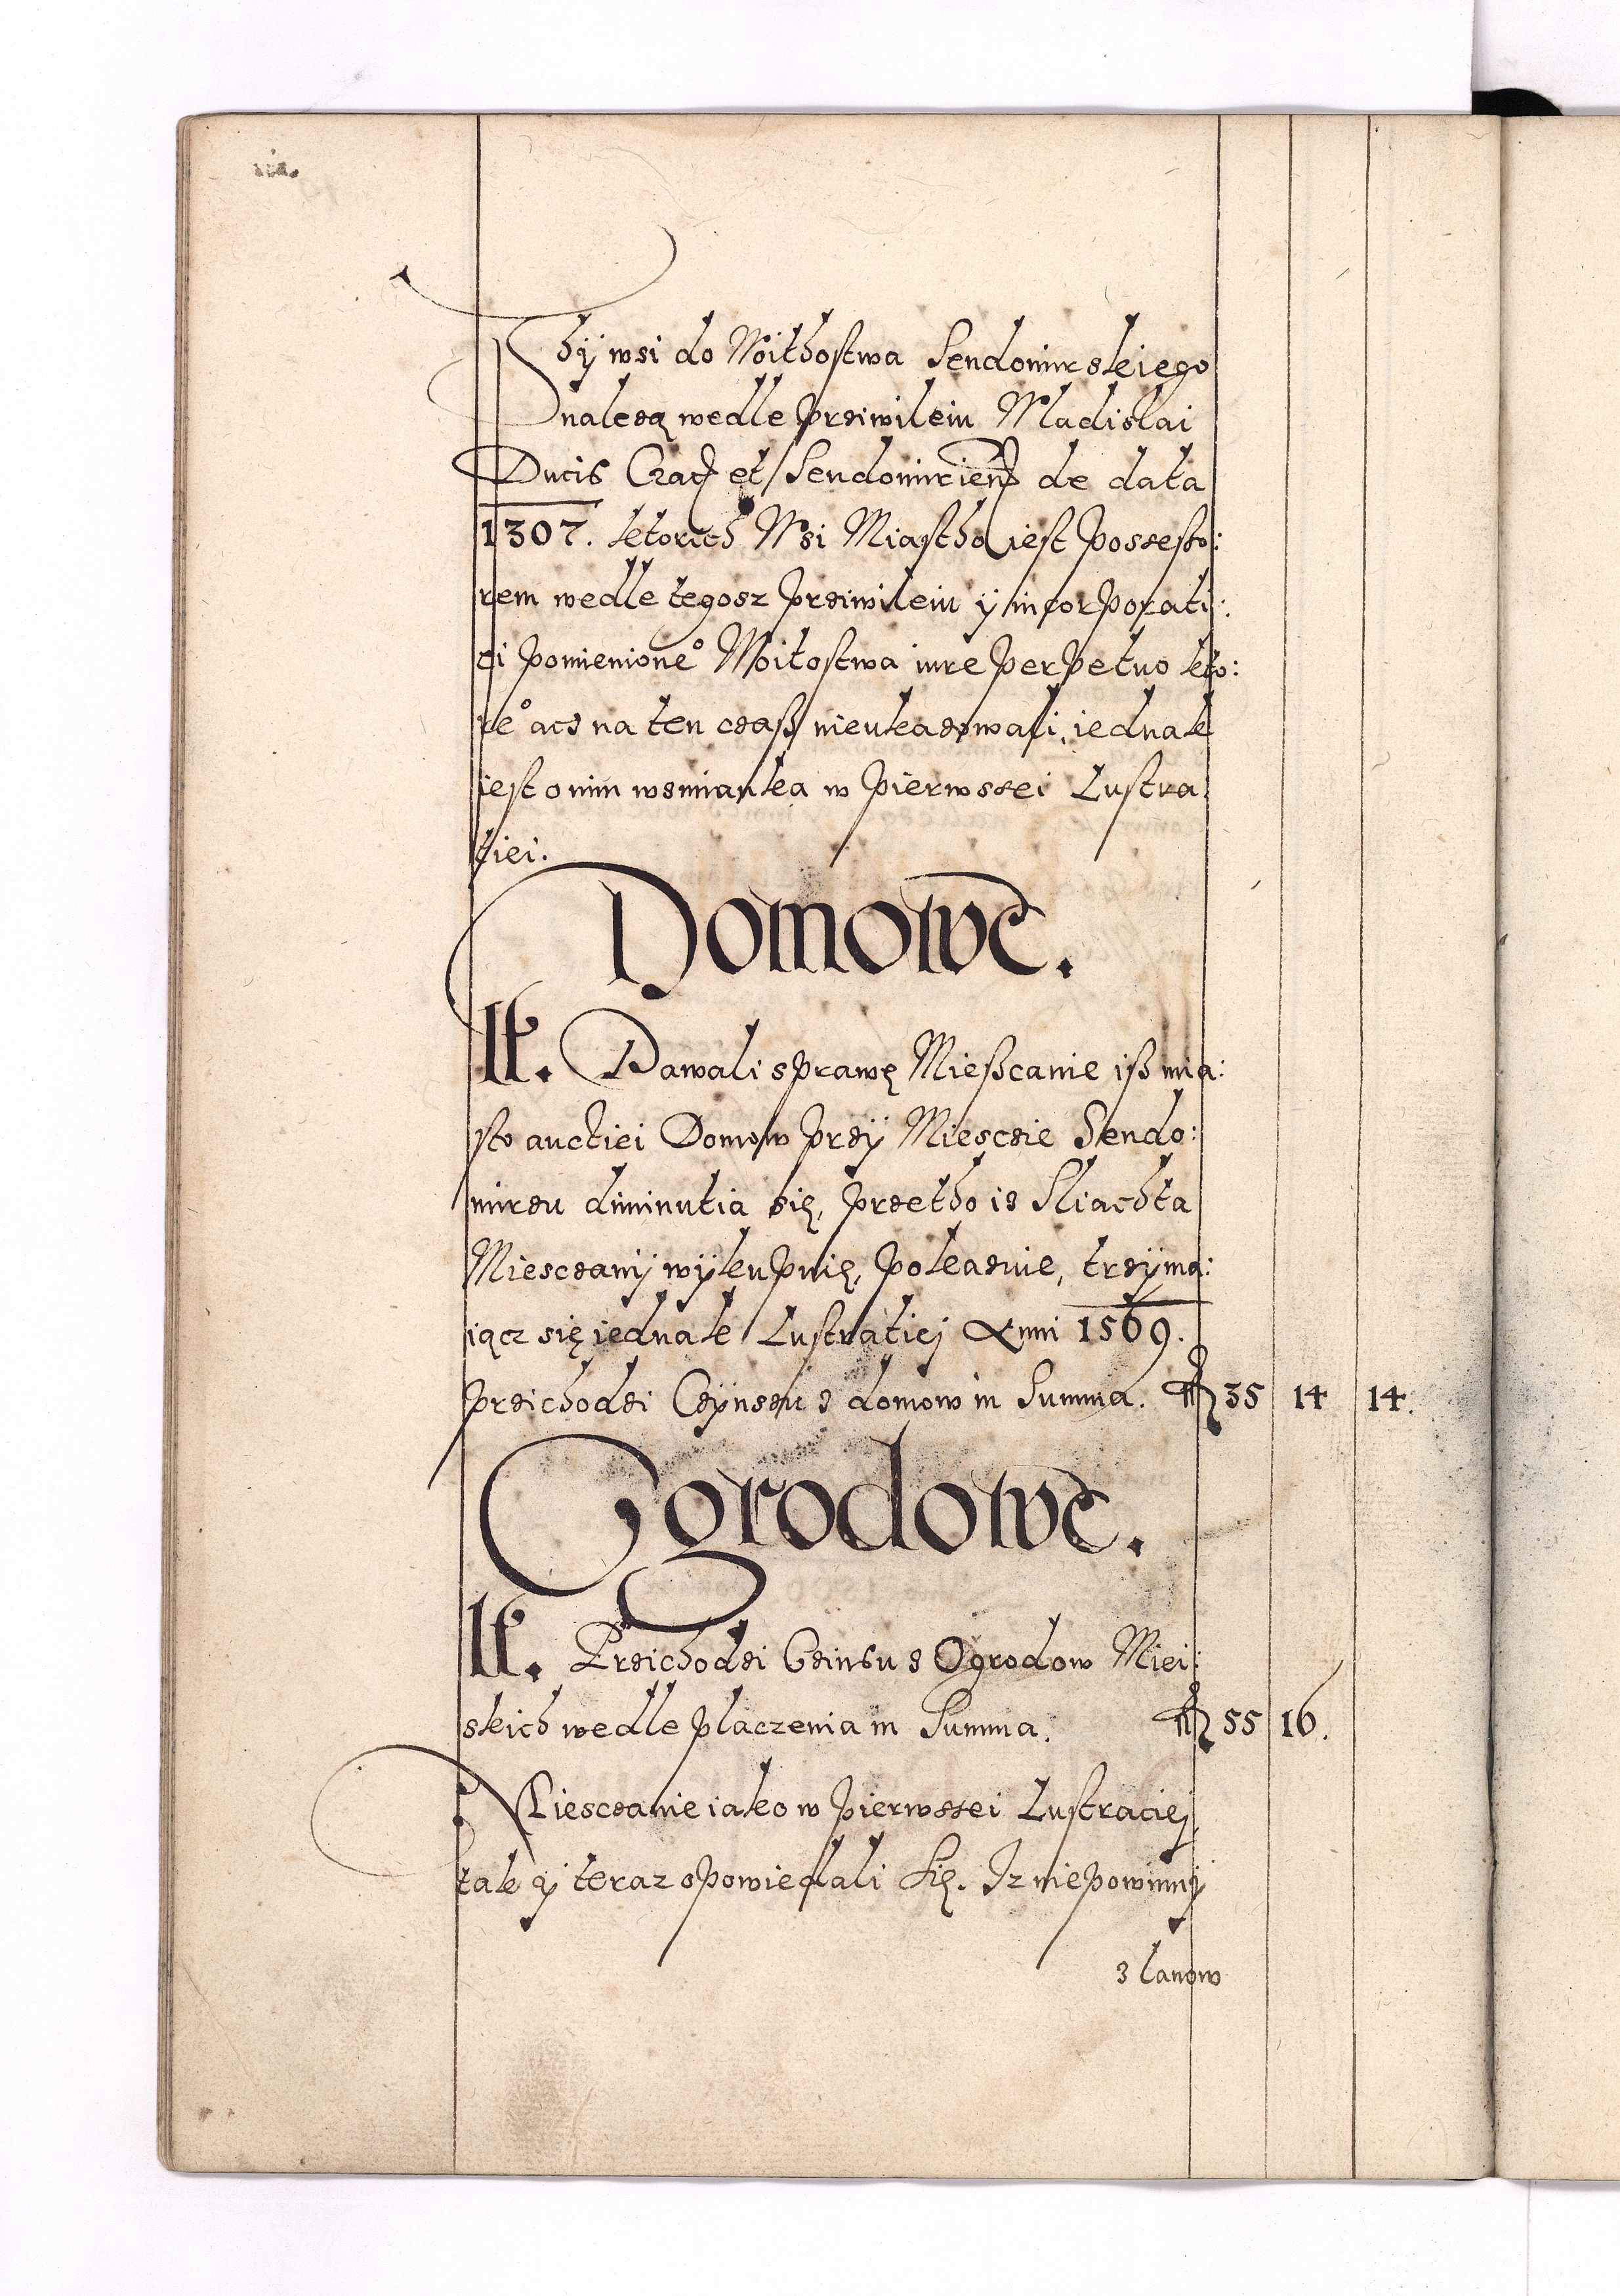 Thÿ wsi do Woithostwa Sendomirskiego
należą wedle prziwileiu Wladislai
Ducis Crac et Sendomirien de data
1307. ktorich Wsi Miastho iest possesso:
rem wedle tegosz prziwileiu ÿ incorporati:
ei pomienione° Woitostwa iure perpetuo kto:
re° acz na ten czasß nieukazowali, iednak
iest o nim wzmianka w pierwszei Lustra
tiei.
Domowe.
It. Dawali sprawę Mießcanie iß mia:
sto auctiei Domow przÿ Miesczie Sendo:
mirzu diminutia się, przetho iz Sliachta
Miesczanÿ wÿkupuię, pokazuie, trzÿma:
iącz się iednak Lustratiej Anni 1569.
Przichodzi Czÿnszu z domow in Summa. 35 14 14.
Ogrodowe.
It. Przichodzi Czinsu z Ogrodow Miei:
skich wedle placzenia in Summa. 55 16.
Miesczanie iako w pierwszei Lustraciej,
tak ÿ teraz opowiedali się. Iz nie powinnÿ
z lanow